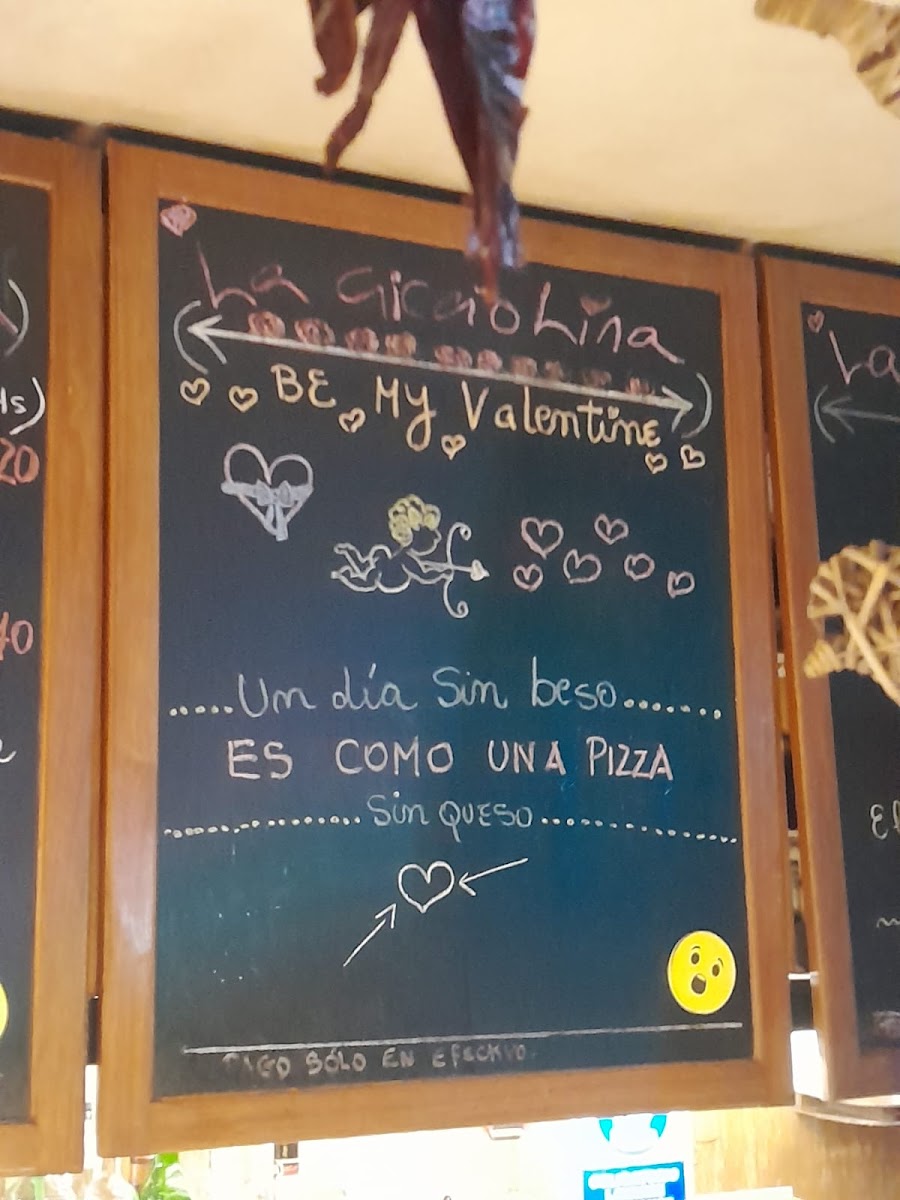 La CicioLina
BE My Valentine
Um día Sin beso
ES COMO UNA PIZZA
Sin QUESO
PAGO SÓLO EN EFECTIVO.
Hs)
20
40
La
El